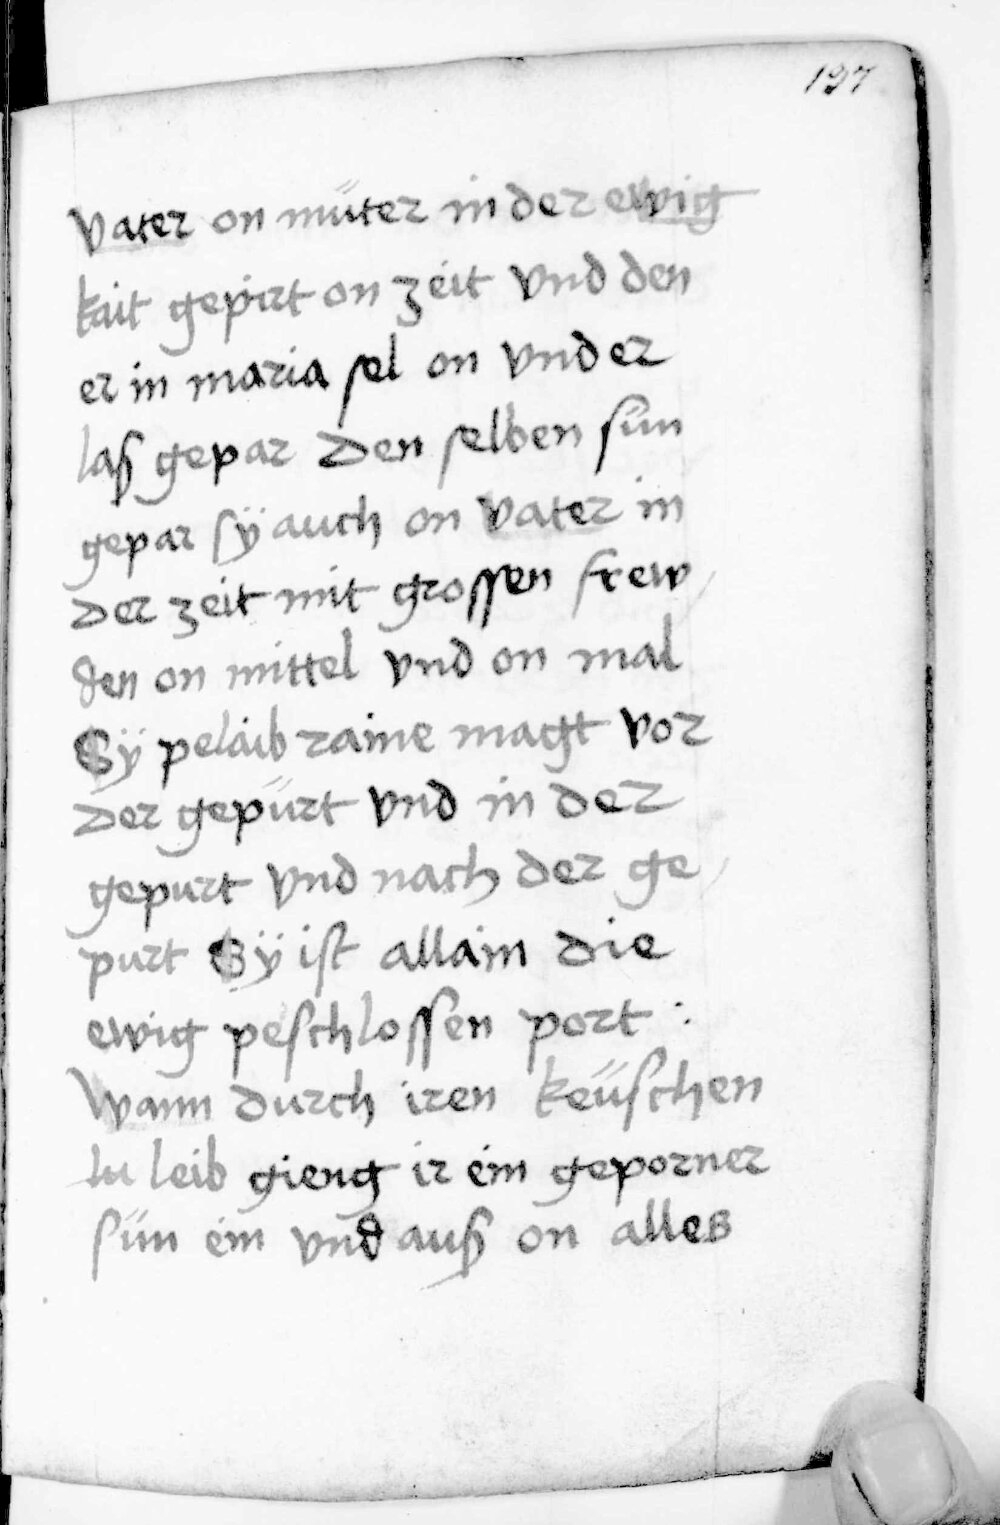 197
vater on müter in der ewig
kait gepirt on zeit vnd den
er in maria sel on vnder
laß gepar Den selben sün
gepar sÿ auch on vater in
Der zeit mit grossen frew
den on mittel vnd on mal
Sÿ pelaib raine magt vor
Der gepürt vnd in der
gepurt vnd nach der ge
purt Sÿ ist allain die
ewig peschlossen port :
Wann durch iren keüschen
leib gieng ir ein geporner
sün ein vnd auß on alles